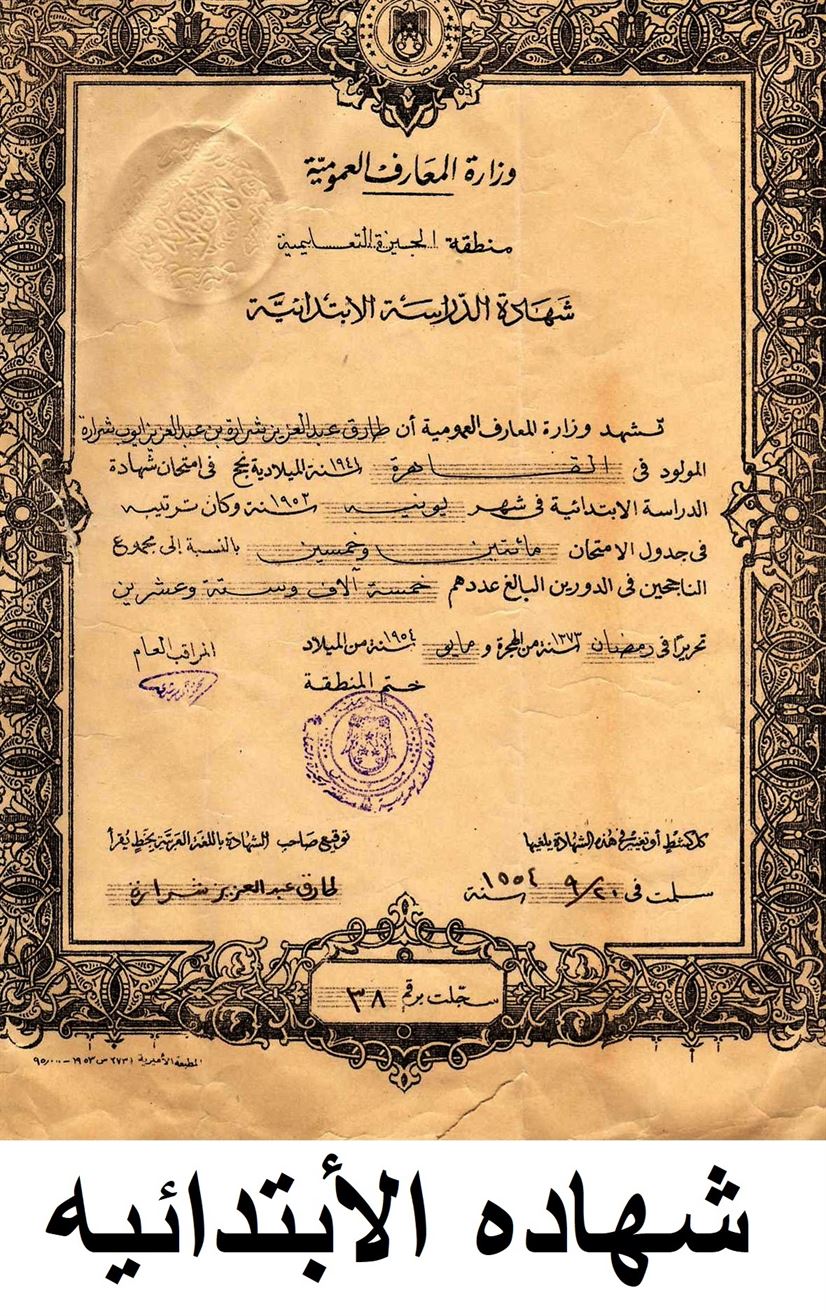 مصر
وزارة المعارف العمومية
منطقة الجيزة التعليمية
شهادة الدراسة الابتدائية
تشهد وزارة المعارف العمومية أن طارق عبد العزيز شرارة بن عبد العزيز أيوب شرارة
المولود فى القاهرة سنة ١٩٤١ الميلادية نجح فى امتحان شهادة
الدراسة الابتدائية فى شهر يونيه سنة ١٩٥٣ وكان ترتيبه
فى جدول الامتحان مائتين وخمسين بالنسبة إلى مجموع
الناجحين فى الدورين البالغ عددهم خمسة آلاف وستة وعشرين
تحريرًا فى رمضان سنة ١٣٧٣ من الهجرة و مايو سنة ١٩٥٤ من الميلاد
المراقب العام
ختم المنطقة
كل كشط أو تغيير فى هذه الشهادة يلغيها
توقيع صاحب الشهادة باللغة العربية بخط يُقرأ
سلمت فى ٢٠/٩ سنة ١٩٥٤
طارق عبد العزيز شرارة
سجّلت برقم ٣٨
المطبعة الأميرية
شهاده الأبتدائيه